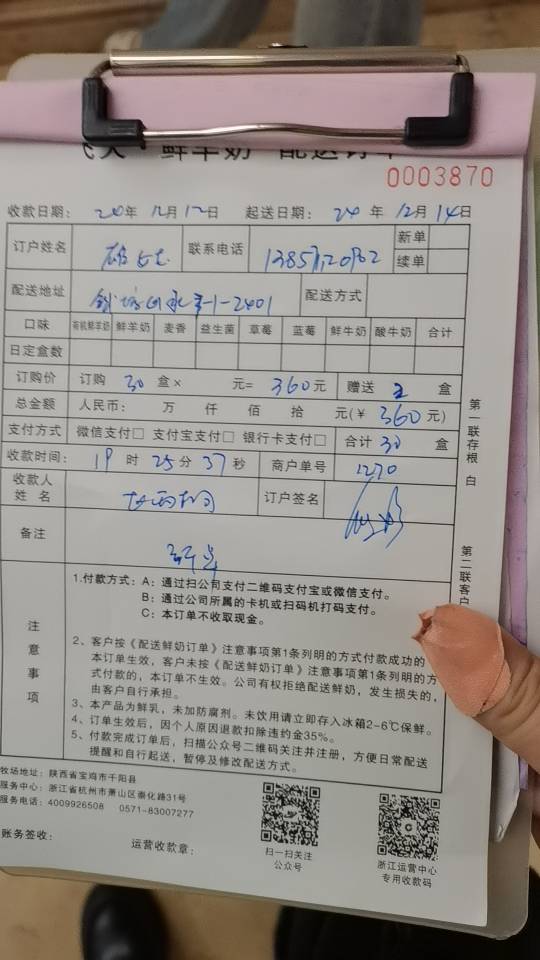 鲜羊奶 配送订单
0003870
收款日期： 20年12月12日 起送日期： 24年12月14日
订户姓名 联系电话 新单
续单
配送地址 配送方式
口味 有机鲜羊奶 鲜羊奶 麦香 益生菌 草莓 蓝莓 鲜牛奶 酸牛奶 合计
日定盒数
订购价 订购 30 盒× 元= 360元 赠送 盒
总金额 人民币： 万 仟 佰 拾 元(￥ 360 元)
支付方式 微信支付□ 支付宝支付□ 银行卡支付□ 合计 30 盒
收款时间： 19 时 25分 37秒 商户单号 1270
收款人姓名 订户签名
备注
第一联存根 白
第二联客户
注意事项
1.付款方式：A：通过扫公司支付二维码支付宝或微信支付。
B：通过公司所属的卡机或扫码机打码支付。
C：本订单不收取现金。
2、客户按《配送鲜奶订单》注意事项第1条列明的方式付款成功的
本订单生效，客户未按《配送鲜奶订单》注意事项第1条列明的方
式付款的，本订单不生效。公司有权拒绝配送鲜奶，发生损失的，
由客户自行承担。
3、本产品为鲜乳，未加防腐剂。未饮用请立即存入冰箱2-6℃保鲜。
4、订单生效后，因个人原因退款扣除违约金35%。
5、付款完成订单后，扫描公众号二维码关注并注册，方便日常配送
提醒和自行起送，暂停及修改配送方式。
牧场地址：陕西省宝鸡市千阳县
服务中心：浙江省杭州市萧山区崇化路31号
服务电话：4009926508 0571-83007277
账务签收： 运营收款章：
扫一扫关注
公众号
浙江运营中心
专用收款码